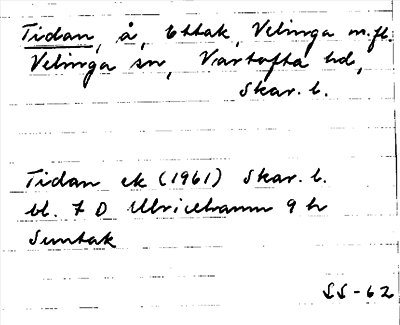 Tidan, å, Ettak, Velinga m.fl.
Velinga sn, Vartofta hd,
Skar. l.
Tidan ek (1961) Skar. l.
bl. 7 D Ulricehamn 9 h
Suntak
SS-62